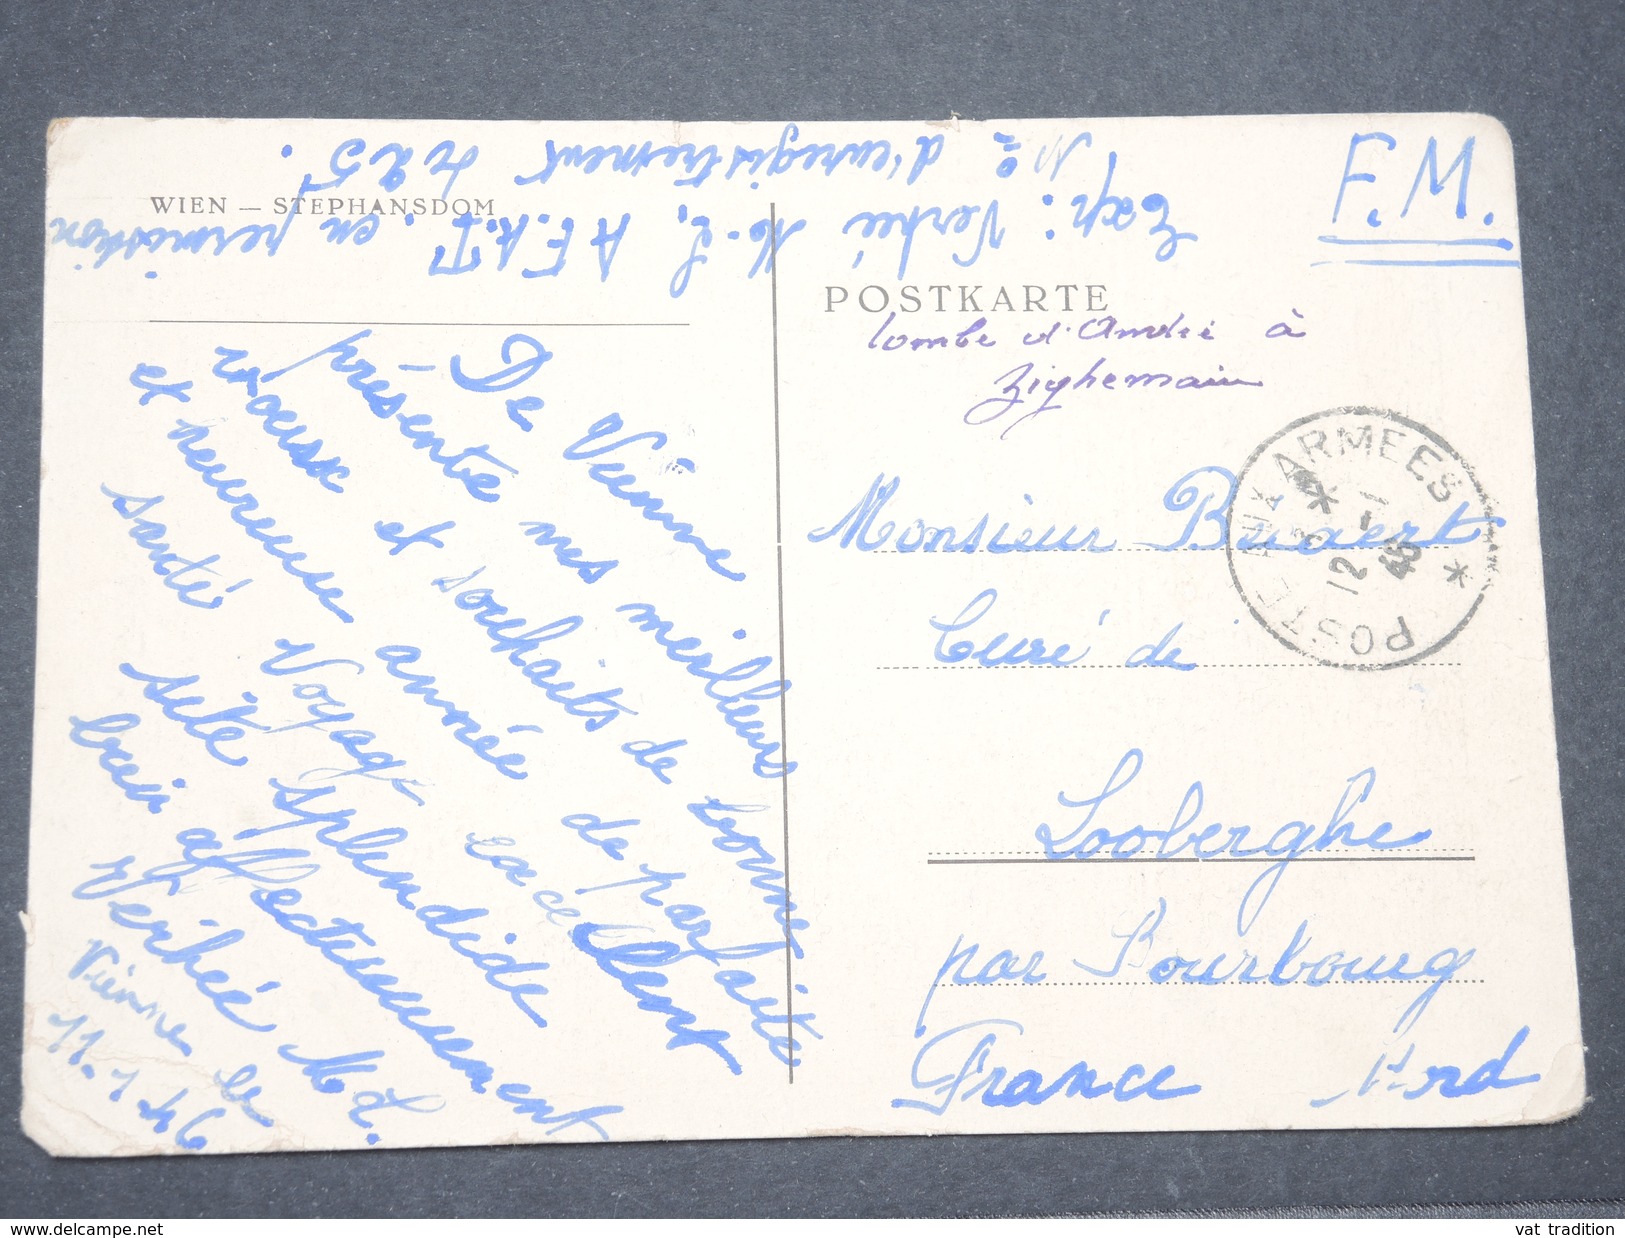 F.M.
Exp: Verhé M-L, A.F.A.T. en permission
N° d'enregistrement 4225.
WIEN — STEPHANSDOM
POSTKARTE
tombe d'André à
Zighemain
De Vienne
présente mes meilleurs
voeux et souhaits de bonne
et heureuse année de parfaite
santé Voyage excellent
site splendide
bien affectueusement
Verhé M L.
Vienne le
11.1.46
POSTE AUX ARMEES
12 -1
46
Monsieur
Curé de
Looberghe
par Bourbourg
France Nord
vat tradition
www.delcampe.net